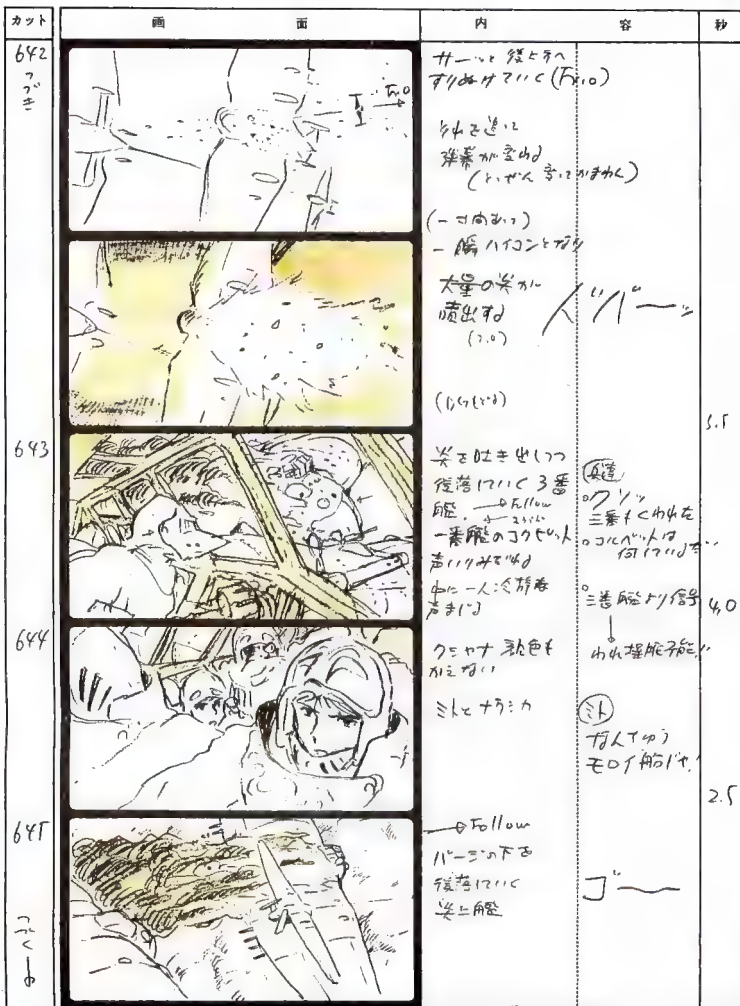 カット 画面 内容 秒
642
つづき
サーッと後上方へ
すりぬけていく(Fr.o)
それを追って
弾幕が変わる
(とぜん変ってかまわん)
一瞬ハイコンとなり
大量の炎が
噴出する
(2.0)
ババーッ
643
炎を吐き出しつつ
後落していく3番
艦 → Follow
一番艦のコクピット
声いりみだれる
中に一人冷静な
声まじる
兵達
○クソッ
三番もくわれた
○コルベットは
何している
○三番艦より信号
↓
われ操舵不能!!
4.0
644
クシャナ 顔色も
かえない
ミトとナウシカ
ミト
なんちゅう
モロイ船じゃ!
2.5
645
→ Follow
バージの下を
後落していく
炎上艦
ゴー
つづく